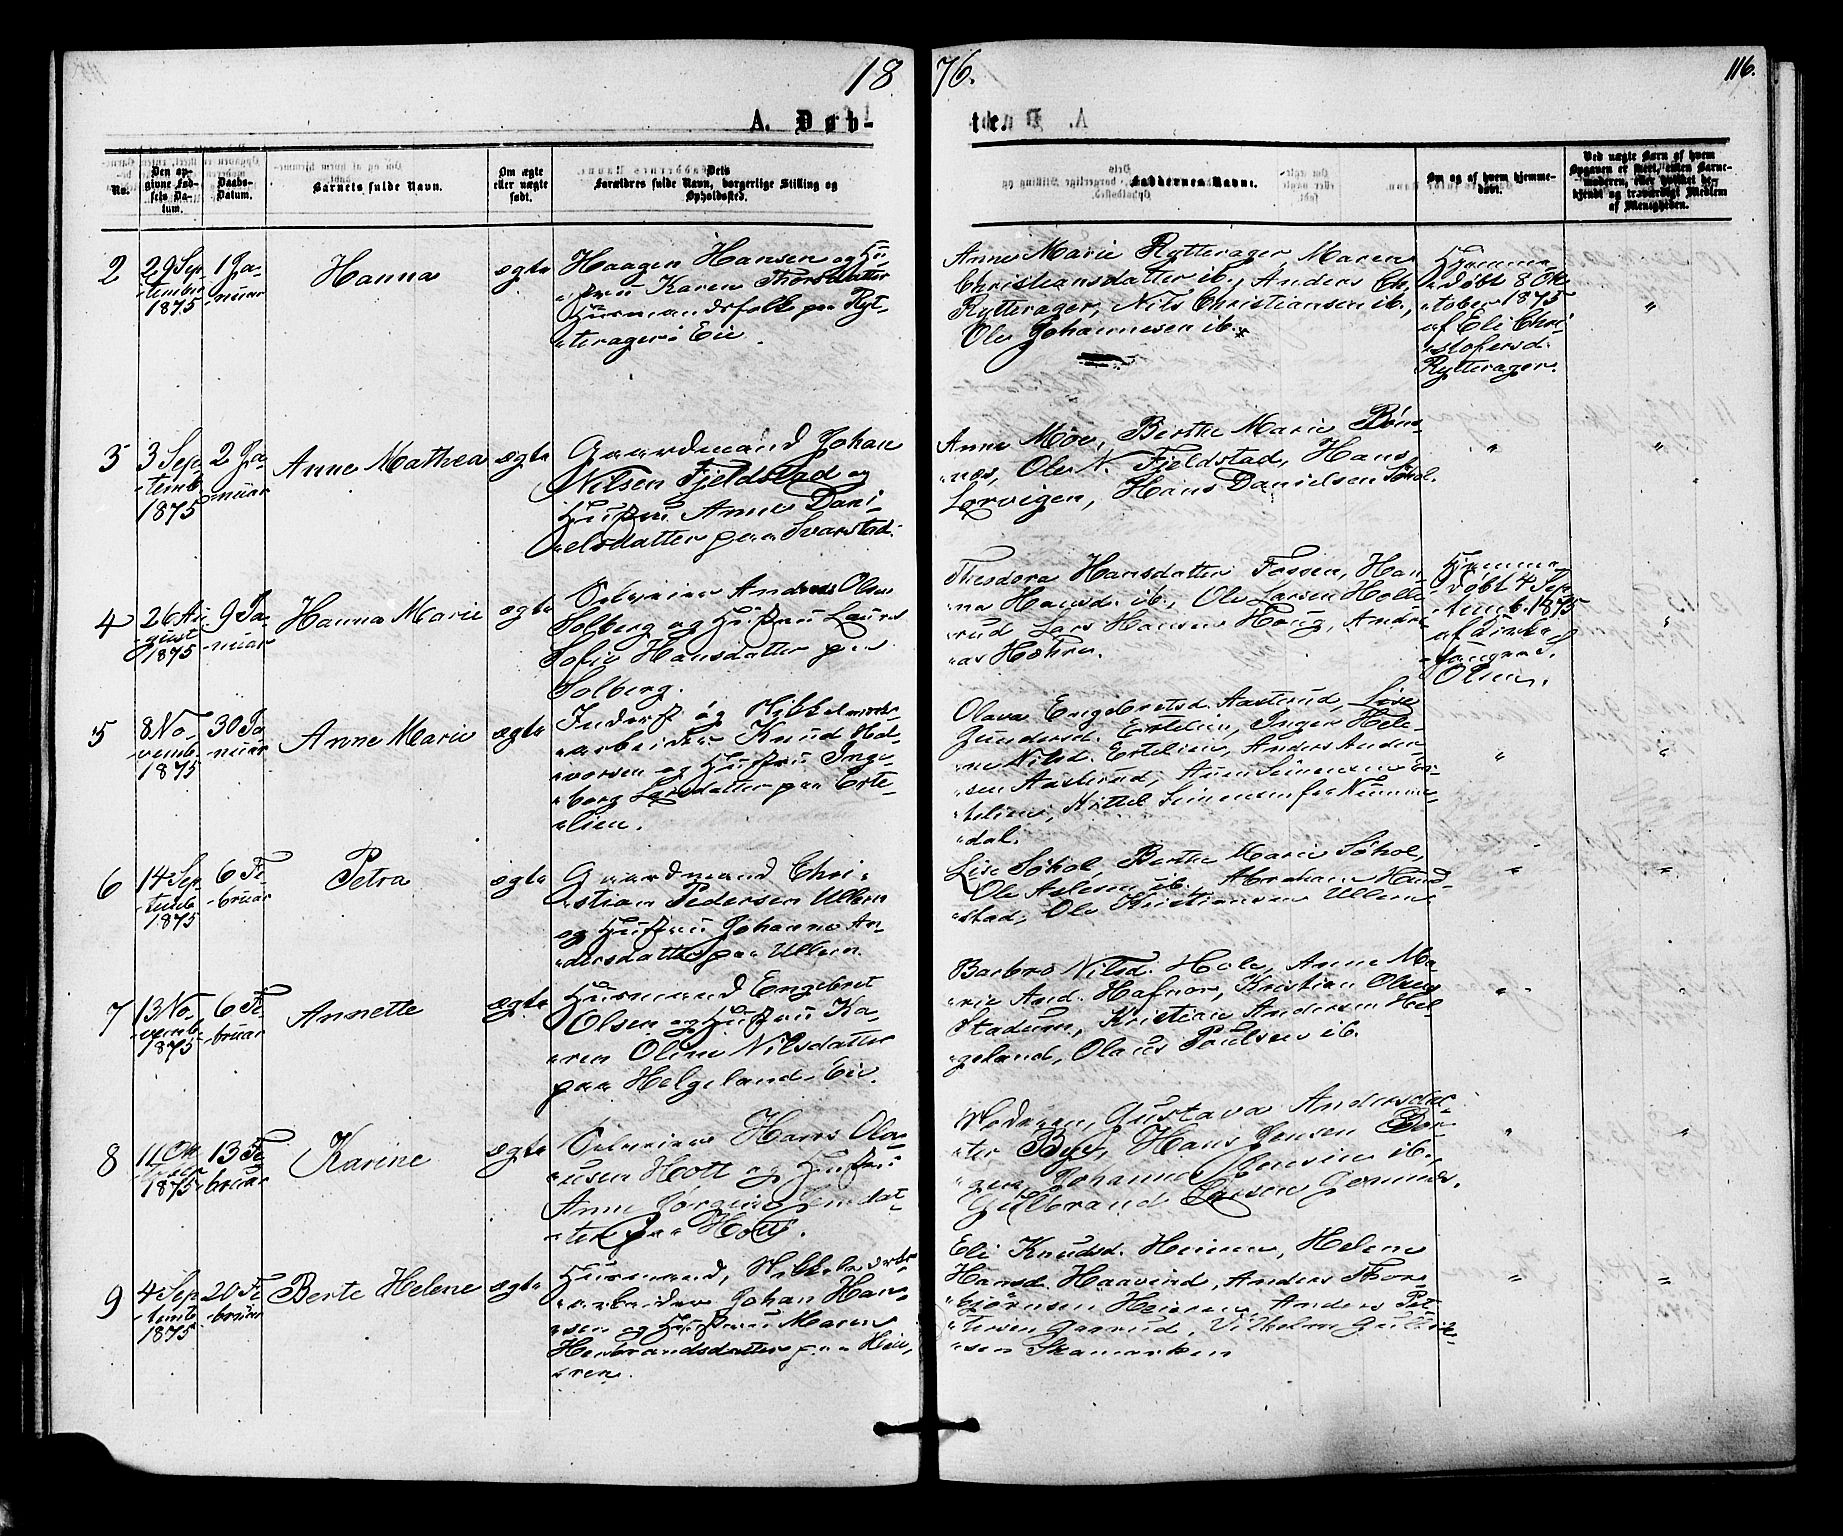 1876.
116.
A. Døbte.
No.
Den opgivne Fødsels Datum.
Daabs-Datum.
Barnets fulde Navn.
Om ægte eller uægte født.
Dets Forældres fulde Navn, borgerlige Stilling og Opholdssted.
Faddernes Navne.
Om og af hvem hjemmedøbt.
2
29 Sep-
-tember
1875
1 Ja-
-nuar
Hanna
ægte
Haagen Hansen og Hu-
-stru Karen
Husmandsfolk paa Ryt-
-terager Eie
Anne Marie Rytterager Maren
Christiansdatter ib., Anders Ch.
Rytterager, Nils Christiansen ib.,
Ole Johannesen ib.
Hjemme-
-døbt 8 Ok-
-tober 1875
af Eli Chri-
-stofersd.
Rytterager.
"
3
3 Sep-
-temb.
1875
2 Ja-
-nuar
Anne Mathea
ægte
Gaardmand Johan
Nilsen Fjeldstad og
Hustru Anne Dani-
-elsdatter paa Svarstad.
Anne Moe, Berthe Marie Røn-
-næs, Ole N. Fjeldstad, Hans
Lorvigen, Hans Danielsen Søhol.
"
"
4
26 Au-
-gust
1875
9 Ja-
-nuar
Hanna Marie
ægte
Selveier Andreas Olsen
Solberg og Hustru Laura
Sofie Hansdatter paa
Solberg.
Theodora Hansdatter Fossen, Han-
-na Hansd. ib., Ole Larsen Holle-
-rud Lars Hansen Houg, Andre-
-as Hæhre.
Hjemme-
-døbt 4 Sep-
-temb. 1875
af Kirke-
-sanger
Olsen.
"
5
8 No-
-vemb.
1875
30 Ja-
-nuar
Anne Marie
ægte
Inderst og Nikkelværks-
-arbeider Knud Hal-
-vorsen og Hustru Inge-
-borg Larsdatter paa Erte-
-lien.
Olava Engebretsd. Aasterud, Lovise
Gundersd. Ertelien, Inger Hele-
-ne Nilsd. Ertelien, Anders Ander-
-sen Aasterud, Simensen Er-
-telien, Kittel Simensen fra Numme-
-dal.
"
"
6
14 Sep-
-temb
1875
6 Fe-
-bruar
Petra
ægte
Gaardmand Chri-
-stian Pedersen Ullern
og Hustru Johanne An-
-dersdatter paa Ullern.
Lise Søhol, Berthe Marie Søhol,
Ole Aslesen ib. Abraham Hund-
-stad, Ole Kristiansen Ullern
"
"
7
13 No-
-vemb.
1875
6 Fe-
-bruar
Annette
ægte
Husmand Engebret
Olsen og Hustru Ka-
-ren Oline Nilsdatter
paa Helgelands Eie.
Barbro Nilsd. Hole, Anne Ma-
-rie And. Hafnor, Kristian Olsen
Stadum, Kristian Andersen Hel-
-geland, Olaus Paulsen ib.
"
"
8
11 Ok-
-tober
1875
13 Fe-
-bruar
Karine
ægte
Selveier Hans Ola-
-usen Hott og Hustru
Anne Jørgine Jensdat-
-ter paa Hott.
Moderen, Gustava Andersdat-
-ter By, Hans Jensen
Johannes Jensen ib.,
Gulbrand Larsen
"
"
9
4 Sep-
-temb
1875
20 Fe-
-bruar
Berte Helene
ægte
Husmand, Nikkelværks-
-arbeider Johan Han-
-sen og Hustru Maren
Herbrandsdatter paa Hei-
-ren.
Eli Knudsd. Heieren, Helene
Hansd. Haavind, Anders Thor-
-bjørnsen Heieren Anders Pet-
-tersen Gaarud, Vilhelm Gullik-
-sen Skamarken
"
"